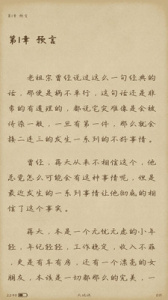 第1章 预言
第1章 预言
老祖宗曾经说过这么一句经典的
话，那便是祸不单行，这句话还是非
常的有道理的，都说它灾难像是会被
传染一般，一旦有第一件，那么就会
接二连三的发生一系列的不好事情。
曾经，蒋大从来不相信这个，他
总觉怎么可能会有这种事情呢，但是
最近发生的一系列事情让他彻底的相
信了这个事实。
蒋大，本是一个无忧无虑的小年
轻，年纪轻轻，工作稳定，收入不菲，
更是有车有房，还有一个漂亮的女
朋友，本该是一切都那么的完美，一